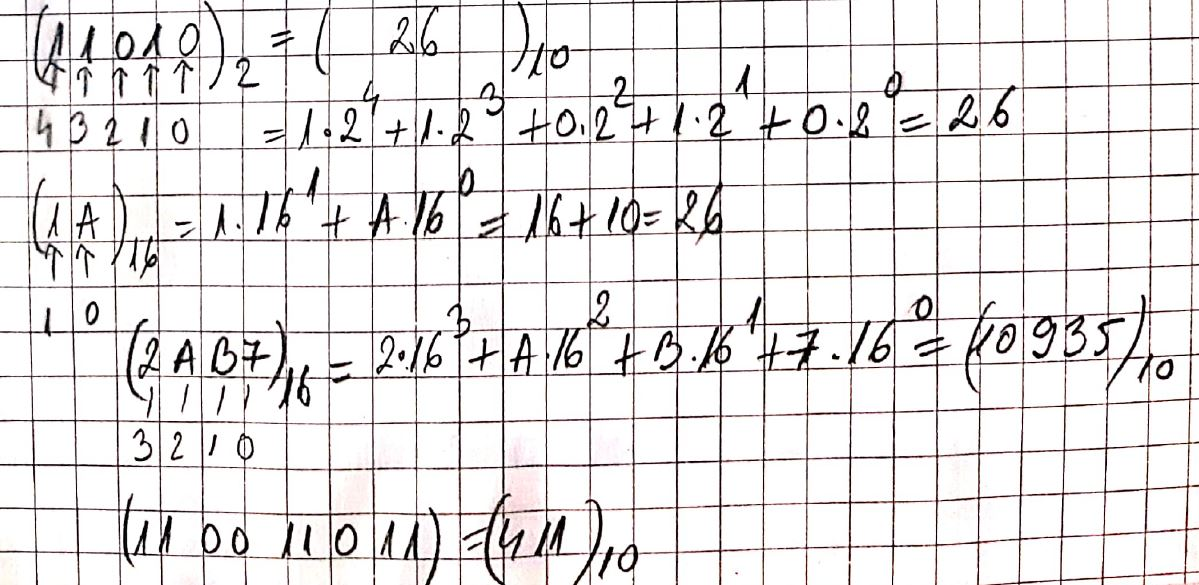 (11010)₂ = ( 26 )₁₀
↑ ↑ ↑ ↑ ↑
4 3 2 1 0 = 1·2⁴ + 1·2³ + 0·2² + 1·2¹ + 0·2⁰ = 26
(1A)₁₆ = 1·16¹ + A·16⁰ = 16 + 10 = 26
↑ ↑
1 0
(2AB7)₁₆ = 2·16³ + A·16² + B·16¹ + 7·16⁰ = (10 935)₁₀
3 2 1 0
(11 00 11 0 11) = (411)₁₀